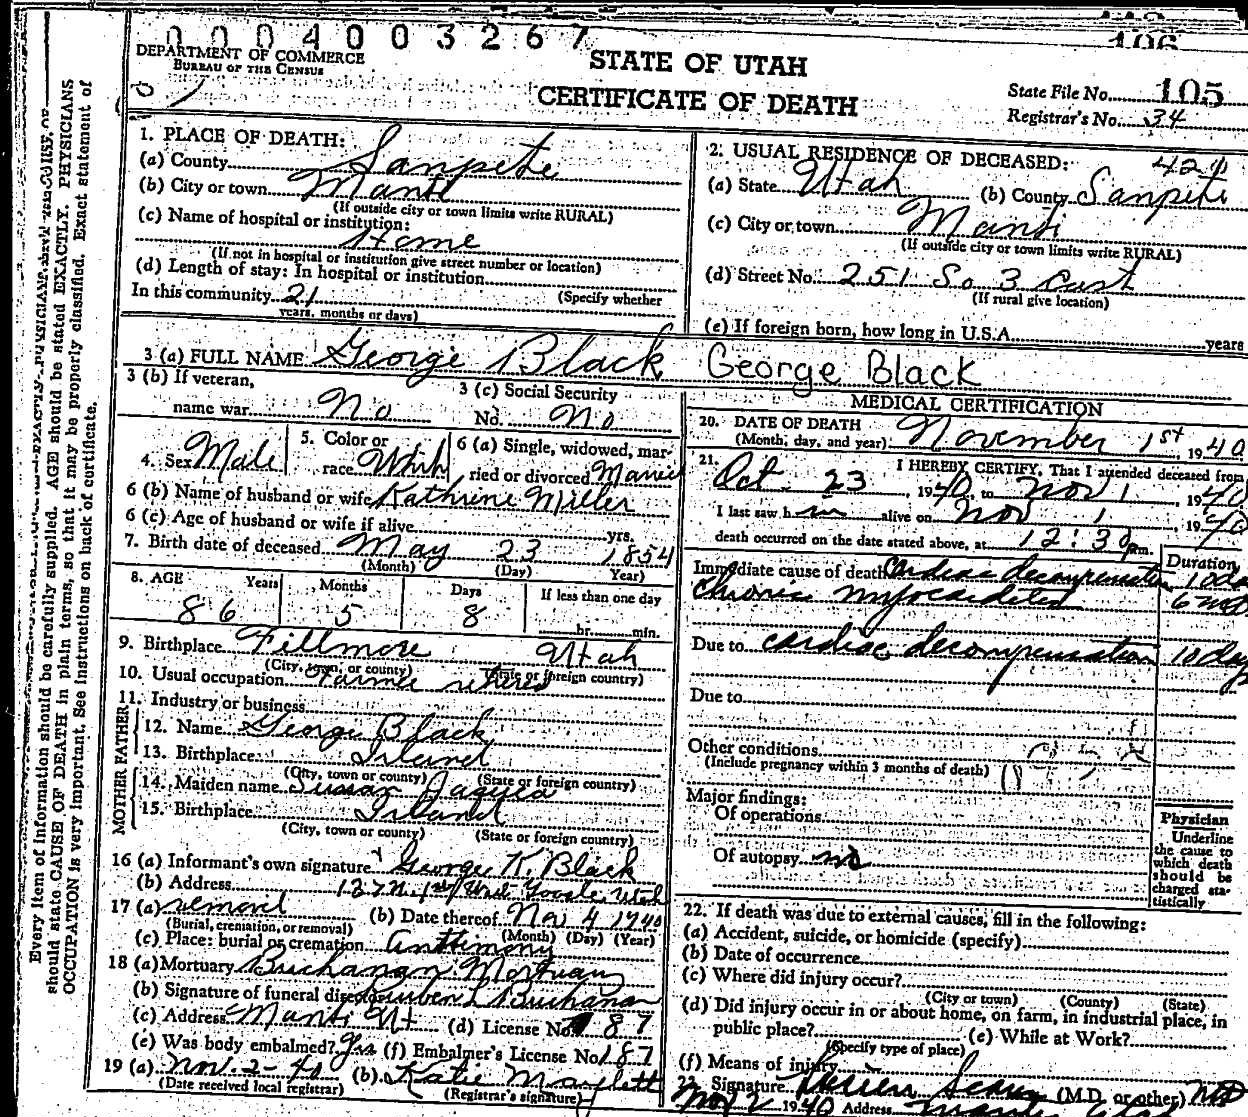 0004003267
106
DEPARTMENT OF COMMERCE
BUREAU OF THE CENSUS
STATE OF UTAH
CERTIFICATE OF DEATH
State File No. 105
Registrar's No. 34
Every item of information should be carefully supplied. AGE should be stated EXACTLY. PHYSICIANS
should state CAUSE OF DEATH in plain terms, so that it may be properly classified. Exact statement of
OCCUPATION is very important. See instructions on back of certificate.
1. PLACE OF DEATH:
(a) County Sanpete
(b) City or town Manti
(If outside city or town limits write RURAL)
(c) Name of hospital or institution:
Home
(If not in hospital or institution give street number or location)
(d) Length of stay: In hospital or institution
(Specify whether
In this community 21
years, months or days)
2. USUAL RESIDENCE OF DECEASED: 424
(a) State Utah (b) County Sanpete
(c) City or town Manti
(If outside city or town limits write RURAL)
(d) Street No. 251 So 3 East
(If rural give location)
(e) If foreign born, how long in U.S.A. years
3 (a) FULL NAME George Black George Black
3 (b) If veteran,
name war No
3 (c) Social Security
No. No
4. Sex Male
5. Color or
race Whit
6 (a) Single, widowed, mar-
ried or divorced Married
6 (b) Name of husband or wife Kathrine Miller
6 (c) Age of husband or wife if alive yrs.
7. Birth date of deceased May 23 1854
(Month) (Day) Year)
8. AGE Years Months Days If less than one day
86 5 8 hr. min.
9. Birthplace Fillmore Utah
(City, town, or county) (State or foreign country)
10. Usual occupation Farmer retired
11. Industry or business
FATHER
12. Name George Black
13. Birthplace Irland
(City, town or county) (State or foreign country)
MOTHER
14. Maiden name Susan
15. Birthplace Irland
(City, town or county) (State or foreign country)
16 (a) Informant's own signature George K. Black
(b) Address 137 N. 1st West Tooele, Utah
17 (a) removal (b) Date thereof Nov 4 1940
(Burial, cremation, or removal) (Month) (Day) (Year)
(c) Place: burial or cremation Anttimony
18 (a) Mortuary Buchanan Mortuary
(b) Signature of funeral director Reuben L Buchanan
(c) Address Manti Ut (d) License No. 87
(e) Was body embalmed? Yes (f) Embalmer's License No. 187
19 (a) Nov. 2- 40 (b) Katie Marlett
(Date received local registrar) (Registrar's signature)
MEDICAL CERTIFICATION
20. DATE OF DEATH
(Month, day, and year) November 1st, 1940
21. I HEREBY CERTIFY, That I attended deceased from
Oct. 23, 1940, to Nov 1, 1940
I last saw him alive on Nov 1, 1940
death occurred on the date stated above, at 12:30 pm.
Duration
Immediate cause of death Cardiac decompensation 10 da
chronic myocarditis 6 mo
Due to cardiac decompensation 10 days
Due to
Other conditions
(Include pregnancy within 3 months of death)
Major findings:
Of operations
Of autopsy no
Physician
Underline
the cause to
which death
should be
charged sta-
tistically
22. If death was due to external causes, fill in the following:
(a) Accident, suicide, or homicide (specify)
(b) Date of occurrence
(c) Where did injury occur?
(City or town) (County) (State)
(d) Did injury occur in or about home, on farm, in industrial place, in
public place? (e) While at Work?
(Specify type of place)
(f) Means of injury
23. Signature (M.D. or other) MD
Nov 2 1940 Address Manti